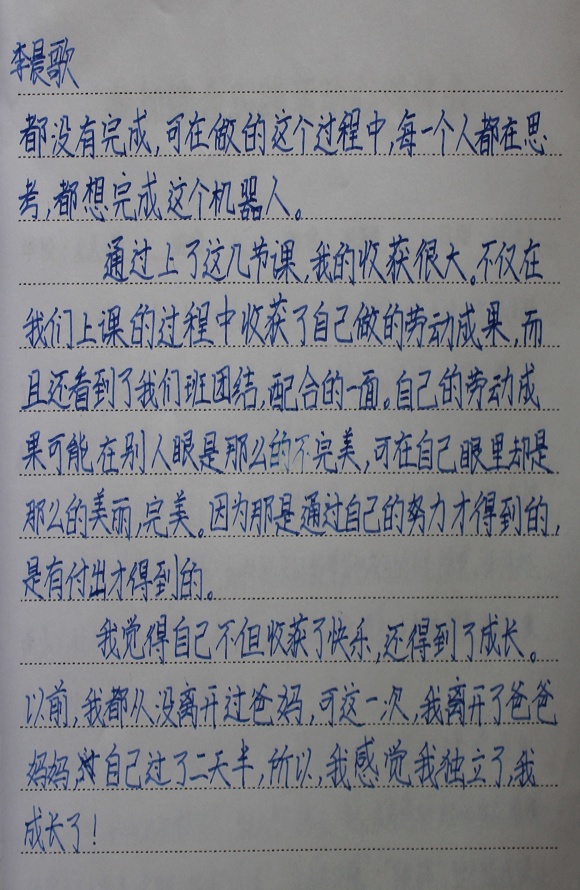 李晨歌
都没有完成,可在做的这个过程中,每一个人都在思
考,都想完成这个机器人。
通过上了这几节课,我的收获很大。不仅在
我们上课的过程中收获了自己做的劳动成果,而
且还看到了我们班团结,配合的一面。自己的劳动成
果可能在别人眼是那么的不完美,可在自己眼里却是
那么的美丽,完美。因为那是通过自己的努力才得到的,
是有付出才得到的。
我觉得自己不但收获了快乐,还得到了成长。
以前,我都从没离开过爸妈,可这一次,我离开了爸爸
妈妈,自己过了二天半,所以,我感觉我独立了,我
成长了!